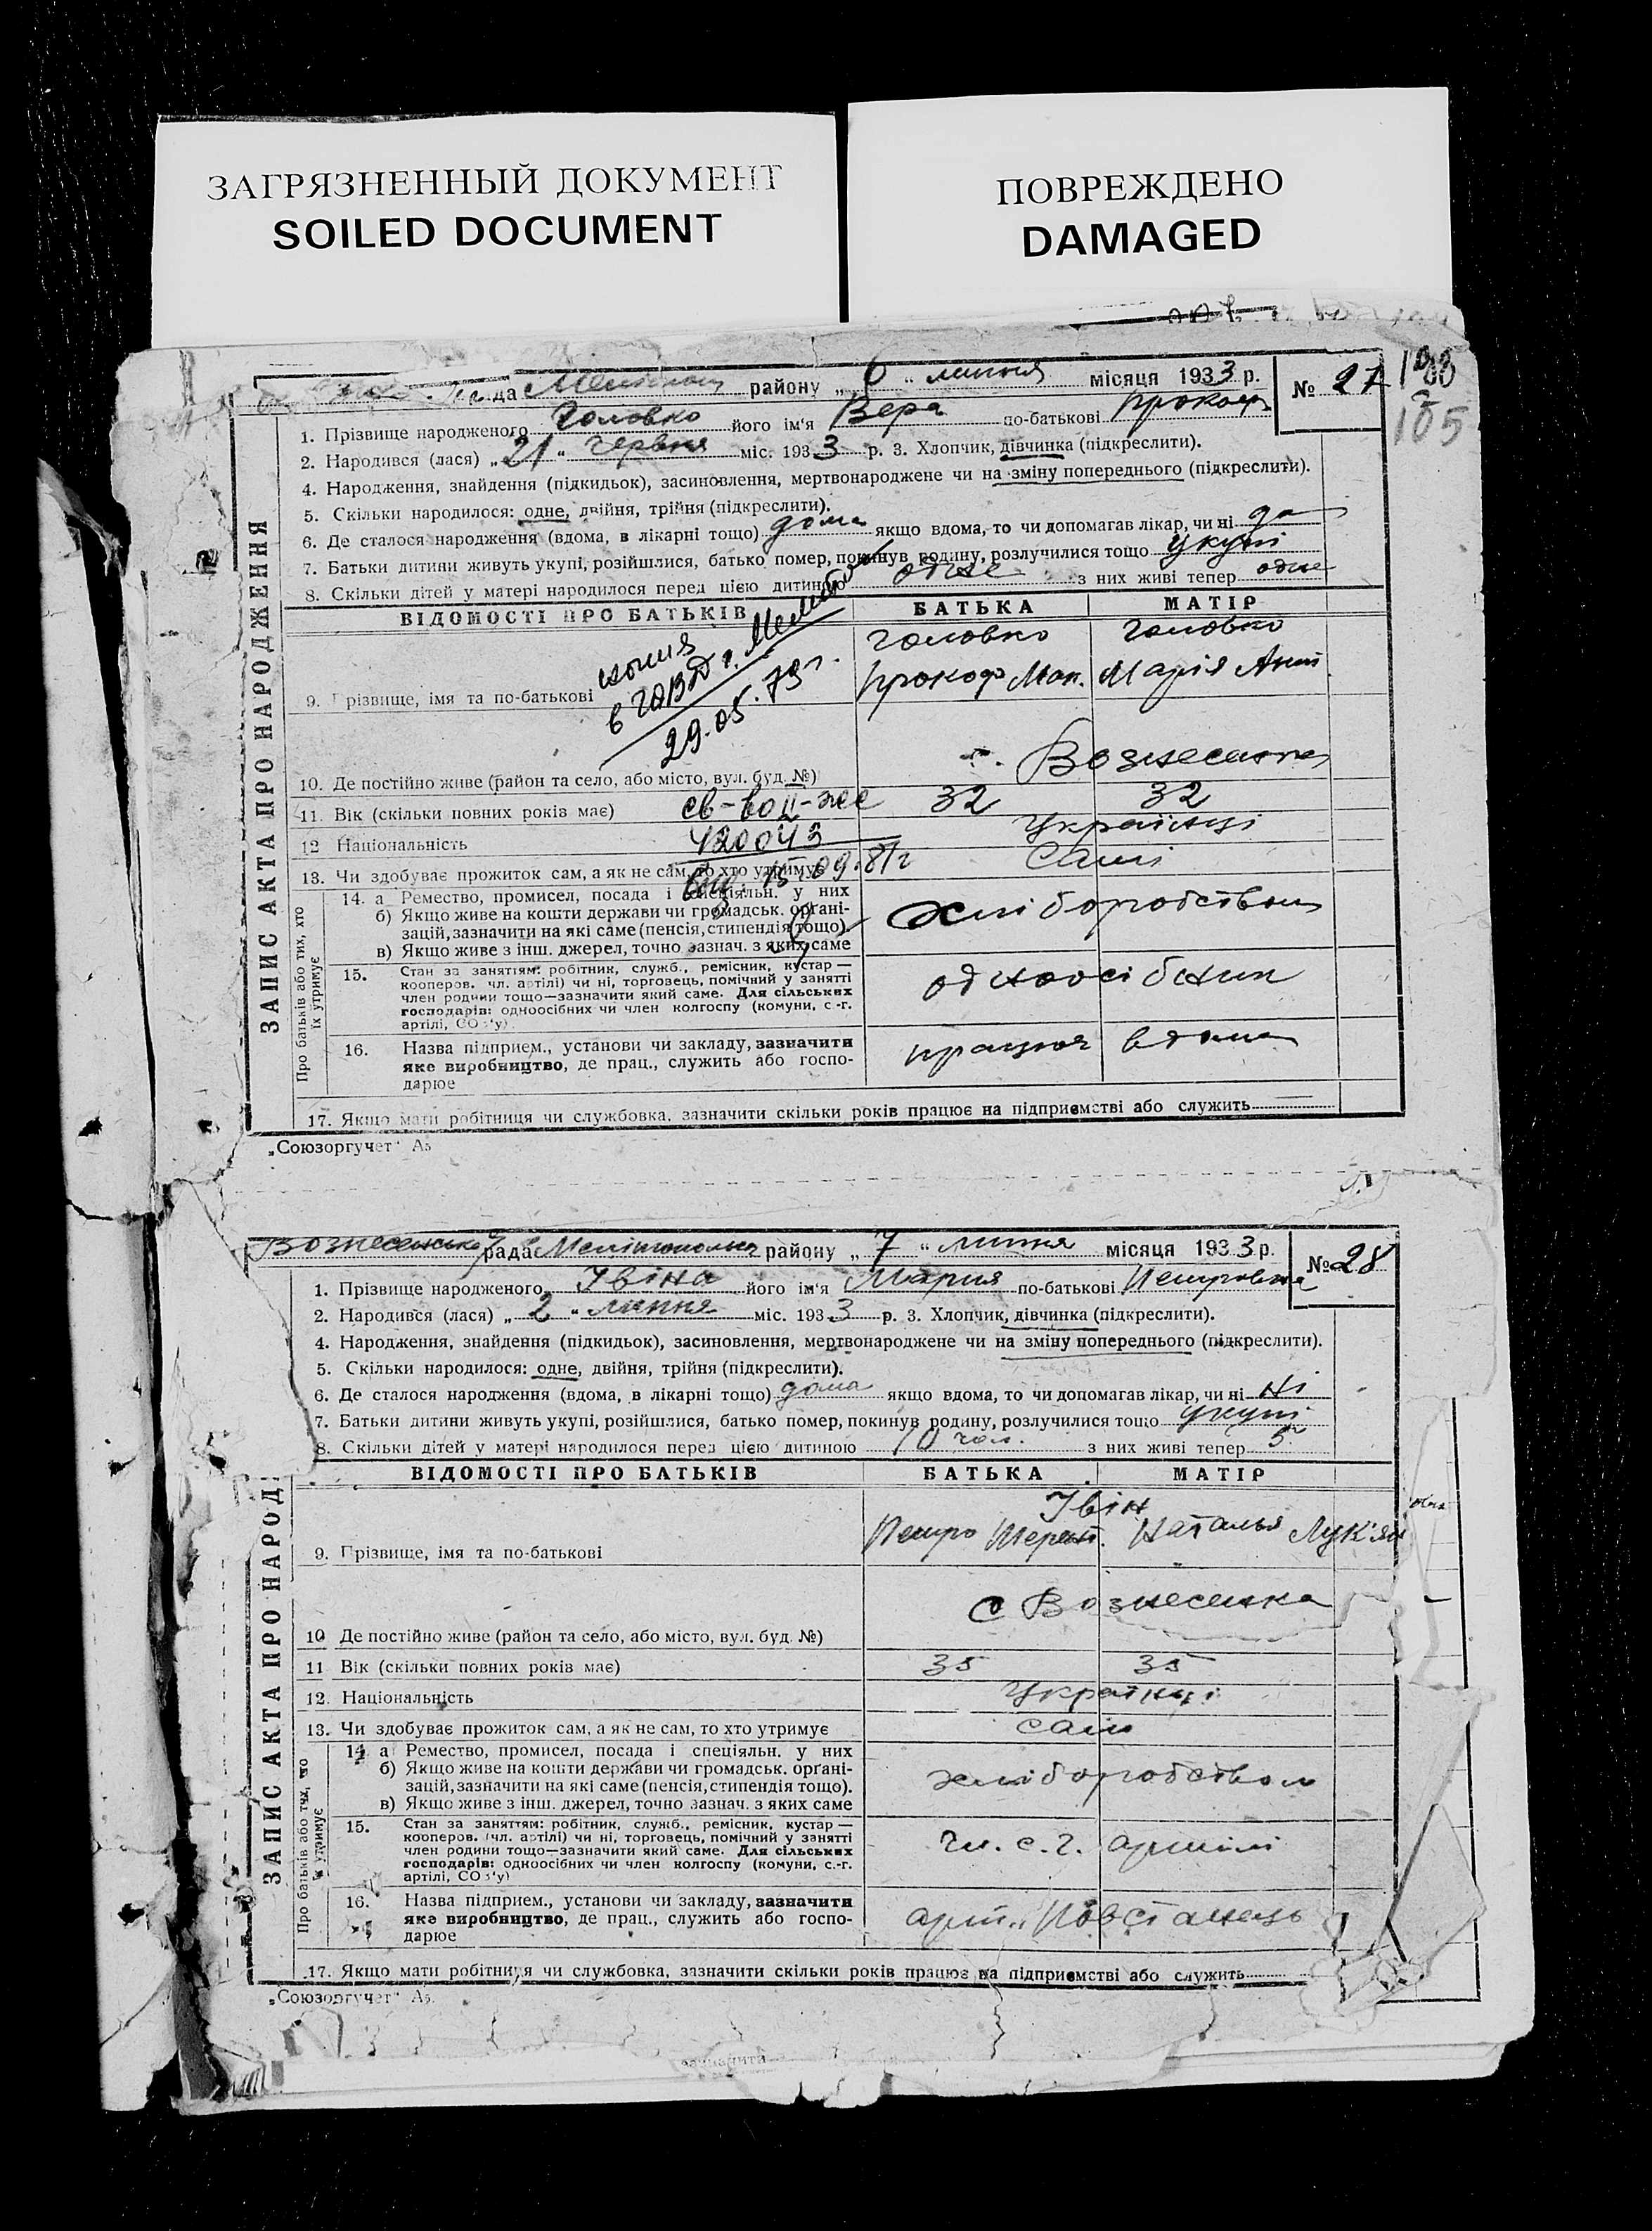 ЗАГРЯЗНЕННЫЙ ДОКУМЕНТ
SOILED DOCUMENT
ПОВРЕЖДЕНО
DAMAGED
да району „ 6 “ липня місяця 1933 р. № 27
105
ЗАПИС АКТА ПРО НАРОДЖЕННЯ
1. Прізвище народженого Головко його ім'я Вера по-батькові Прокоф
2. Народився (лася) „ 21 “ червня міс. 1933 р. 3. Хлопчик, дівчинка (підкреслити).
4. Народження, знайдення (підкидьок), засиновлення, мертвонароджене чи на зміну попереднього (підкреслити).
5. Скільки народилося: одне, двійня, трійня (підкреслити).
6. Де сталося народження (вдома, в лікарні тощо) дома якщо вдома, то чи допомагав лікар, чи ні да
7. Батьки дитини живуть укупі, розійшлися, батько помер, покинув родину, розлучилися тощо укупі
8. Скільки дітей у матері народилося перед цією дитиною одне з них живі тепер одне
ВІДОМОСТІ ПРО БАТЬКІВ БАТЬКА МАТІР
Головко Головко
9. Прізвище, імя та по-батькові Прокоф Мак. Марія Ант
копия
в ЗАВД г.
29.05.73г.
10. Де постійно живе (район та село, або місто, вул. буд. №) Вознесенка
11. Вік (скільки повних років має) 32 32
св-во II-же
420043
15.09.81г
12 Національність Українці
13. Чи здобуває прожиток сам, а як не сам, то хто утримує Самі
Про батьків або тих, хто їх утримує
14. а Ремество, промисел, посада і спеціяльн. у них
б) Якщо живе на кошти держави чи громадськ. органі-
зацій, зазначити на які саме (пенсія, стипендія тощо). хліборобством
в) Якщо живе з інш. джерел, точно зазнач. з яких саме
15. Стан за заняттям: робітник, служб., ремісник, кустар —
кооперов. чл. артілі) чи ні, торговець, помічний у занятті
член родини тощо—зазначити який саме. Для сільських
господарів: одноосібних чи член колгоспу (комуни, с.-г.
артілі, СОЗ'у)
одноосібник
16. Назва підприєм., установи чи закладу, зазначити
яке виробництво, де прац., служить або госпо-
дарює
працює вдома
17. Якщо мати робітниця чи службовка, зазначити скільки років працює на підприємстві або служить
„Союзоргучет“ Аз
Вознесенська рада Мелітопольск району „ 7 “ липня місяця 1933 р. № 28
ЗАПИС АКТА ПРО НАРОД
1. Прізвище народженого Івіна його ім'я Мария по-батькові Петровна
2. Народився (лася) „ 2 “ липня міс. 1933 р. 3. Хлопчик, дівчинка (підкреслити).
4. Народження, знайдення (підкидьок), засиновлення, мертвонароджене чи на зміну попереднього (підкреслити).
5. Скільки народилося: одне, двійня, трійня (підкреслити).
6. Де сталося народження (вдома, в лікарні тощо) дома якщо вдома, то чи допомагав лікар, чи ні ні
7. Батьки дитини живуть укупі, розійшлися, батько помер, покинув родину, розлучилися тощо укупі
8. Скільки дітей у матері народилося перед цією дитиною 10 чол. з них живі тепер 5
ВІДОМОСТІ ПРО БАТЬКІВ БАТЬКА МАТІР
Івін
9. Прізвище, імя та по-батькові Петро Терент. Наталья Лук'ян
с Вознесенка
10 Де постійно живе (район та село, або місто, вул. буд. №)
11 Вік (скільки повних років має) 35 35
12. Національність Українці
13. Чи здобуває прожиток сам, а як не сам, то хто утримує самі
Про батьків або тих, що їх утримує
14 а Ремество, промисел, посада і спеціяльн. у них
б) Якщо живе на кошти держави чи громадськ. органі-
зацій, зазначити на які саме (пенсія, стипендія тощо). хліборобством
в) Якщо живе з інш. джерел, точно зазнач. з яких саме
15. Стан за заняттям: робітник, служб., ремісник, кустар —
кооперов. (чл. артілі) чи ні, торговець, помічний у занятті
член родини тощо—зазначити який саме. Для сільських
господарів: одноосібних чи член колгоспу (комуни, с.-г.
артілі, СОЗ'у)
чл. с. г. артілі
16. Назва підприєм., установи чи закладу, зазначити
яке виробництво, де прац., служить або госпо-
дарює
арт. Повстанець
17. Якщо мати робітниця чи службовка, зазначити скільки років працює на підприємстві або служить
„Союзоргучет“ Аз.